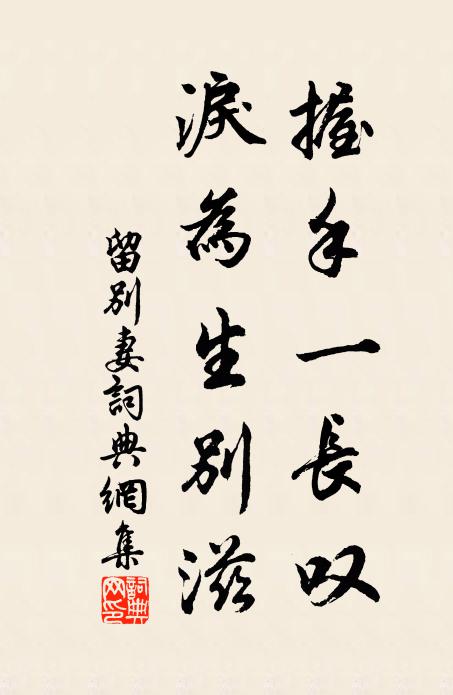 握手一長叹
淚為生別滋
留別妻詞典網集
詞典网印